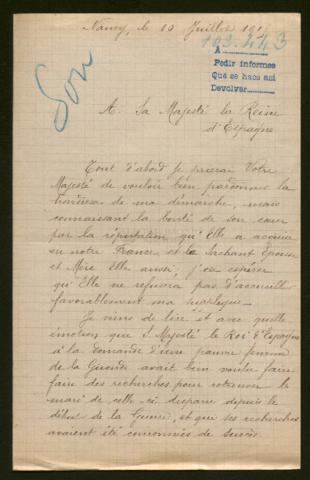 Nancy, le 10 Juillet 191
103.443
Son
A
Pedir informes
Que se haga así
Devolver
A Sa Majesté la Reine
d'Espagne
Tout d'abord je prierai Votre
Majesté de vouloir bien pardonner la
hardiesse de ma démarche, mais
connaissant la bonté de son cœur
par la réputation qu'Elle a acquise
en notre France et la sachant Épouse
et Mère Elle aussi, j'ose espérer
qu'Elle ne refusera pas d'accueillir
favorablement ma
Je viens de lire et avec quelle
émotion que S. Majesté le Roi d'Espagne
à la demande d'une pauvre femme
de la Gironde avait bien voulu faire
faire des recherches pour retrouver le
mari de celle-ci disparu depuis le
début de la Guerre, et que ses recherches
avaient été couronnées de succès.